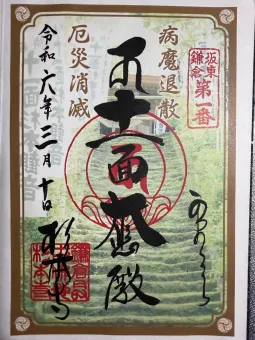 坂東
鎌倉
第一番
病魔退散
十一面大悲殿
厄災消滅
令和六年三月十日
杉本寺